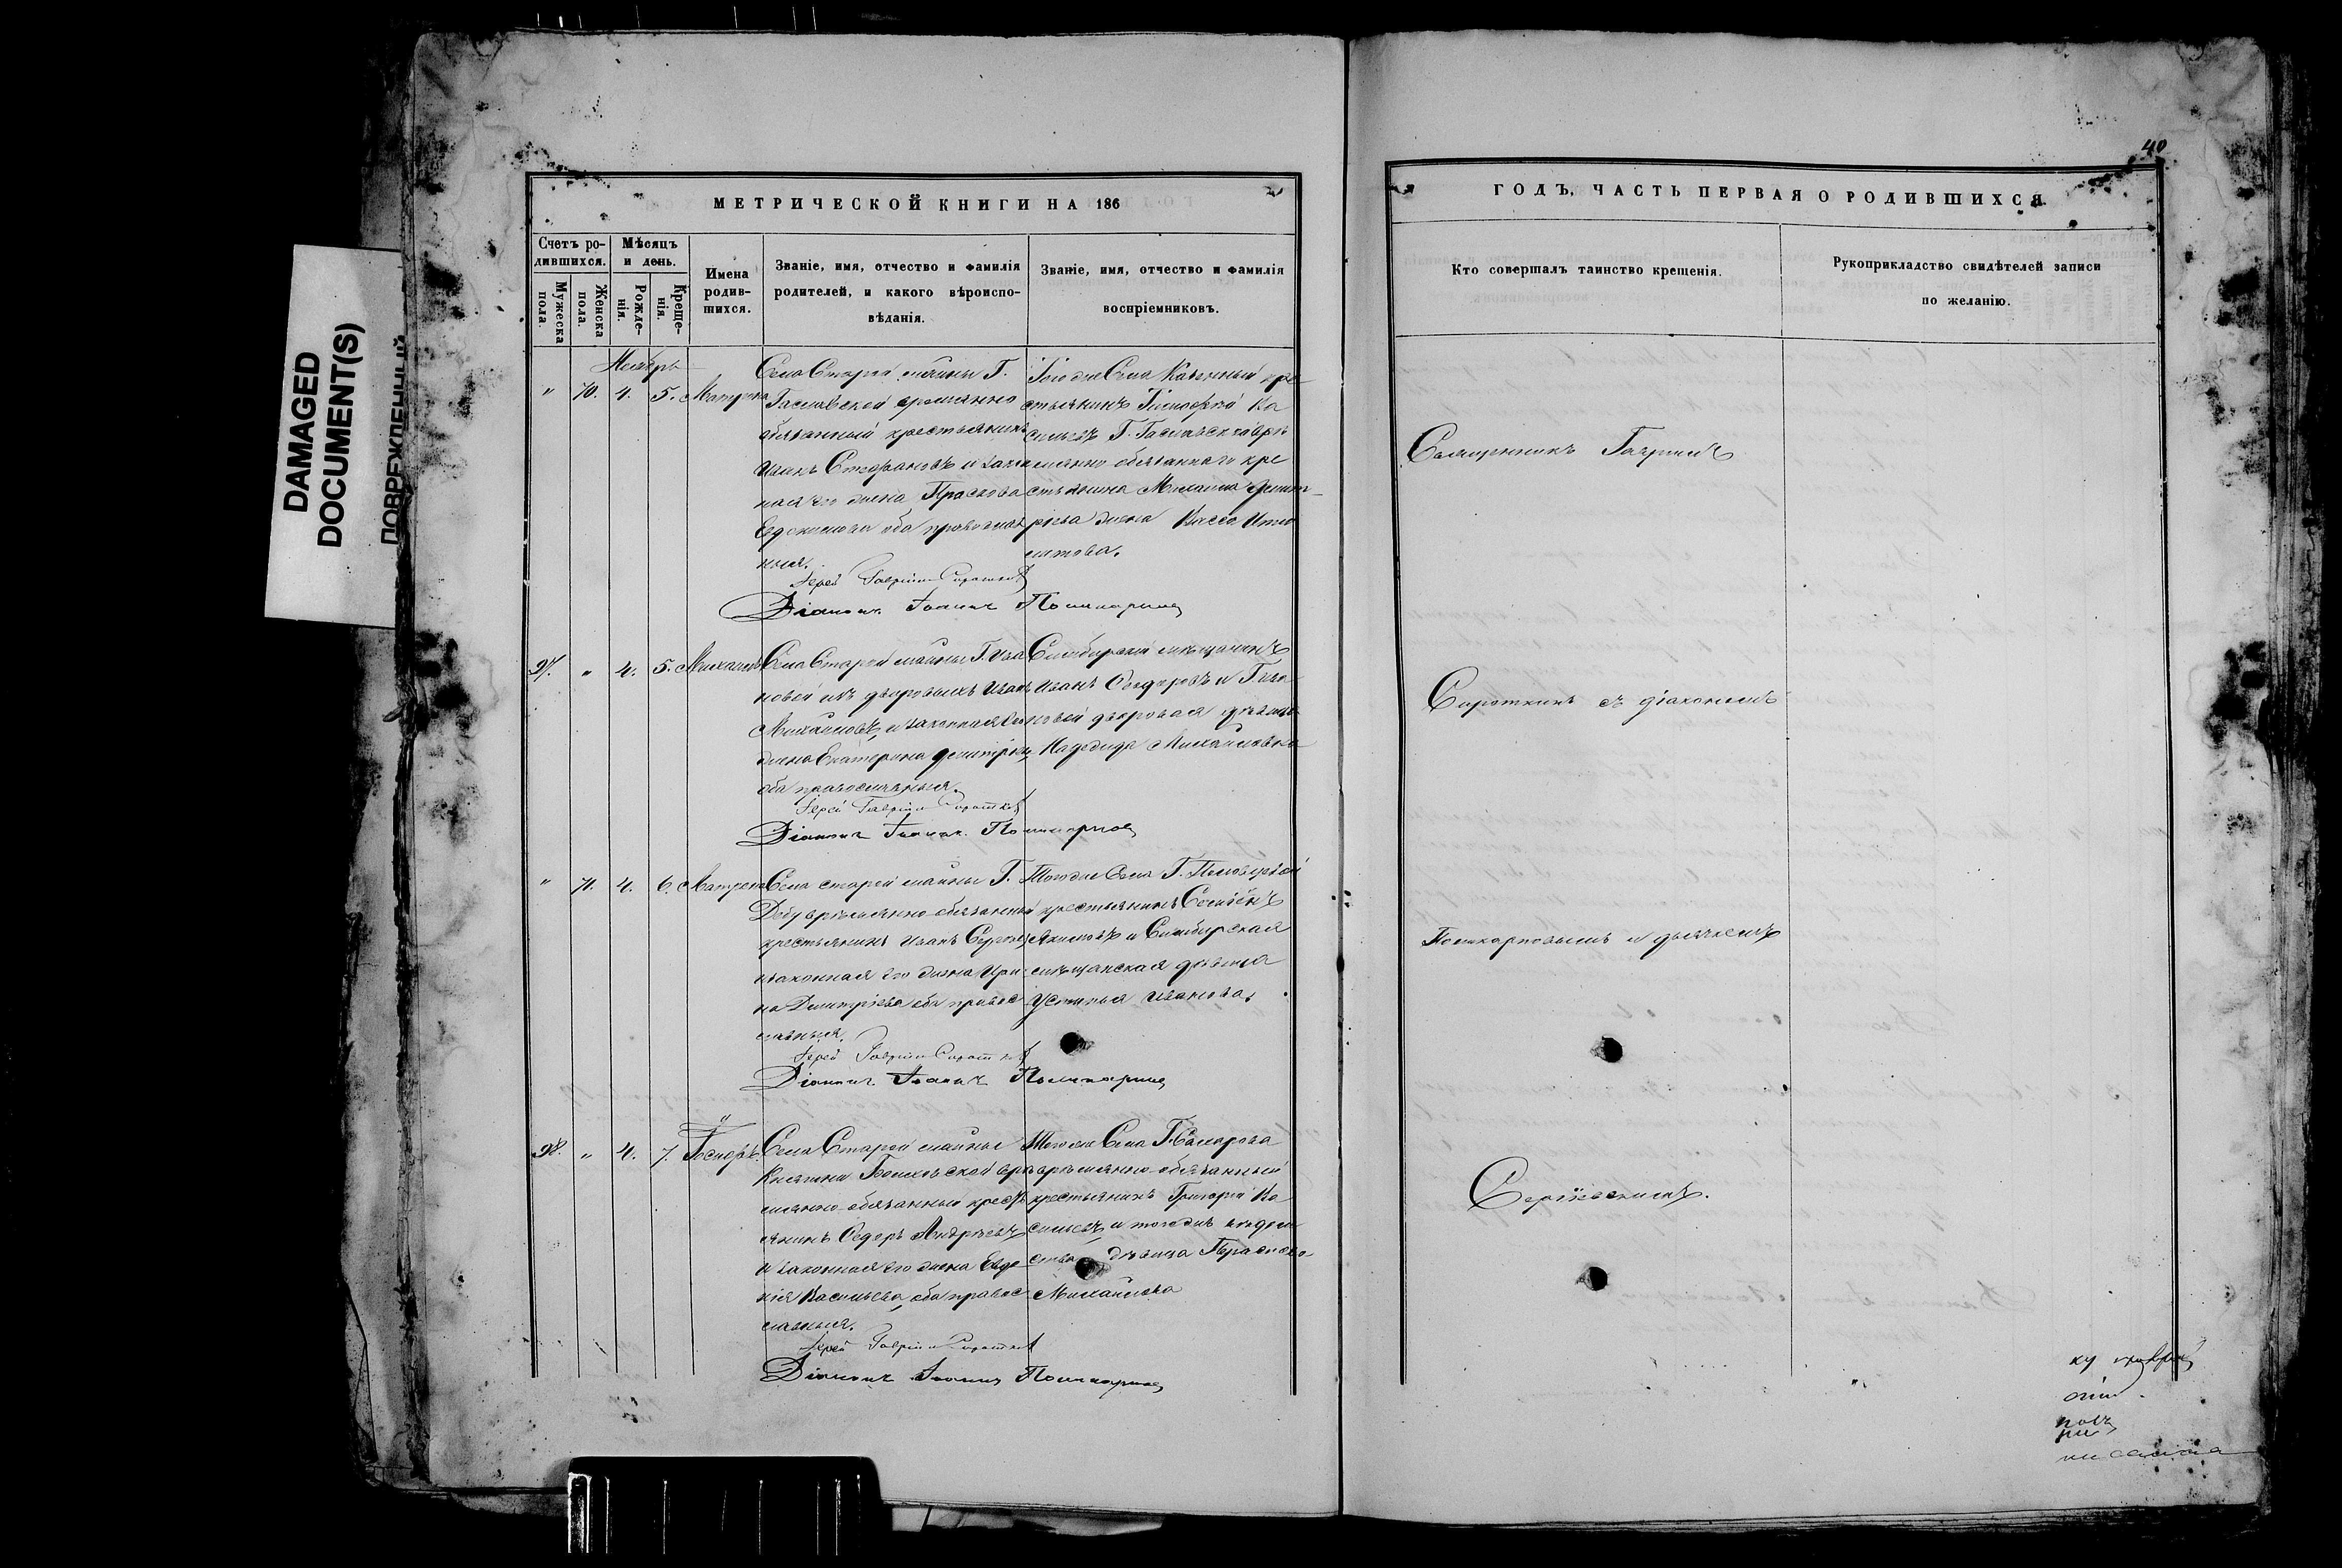 DAMAGED
DOCUMENT(S)
ПОВРЕЖДЕННЫЙ
МЕТРИЧЕСКОЙ КНИГИ НА 186
Счетъ ро-
дившихся.
Мѣсяцъ
и день.
Мужеска
пола.
Женска
пола.
Рожде-
нія.
Креще-
нія.
Имена
родив-
шихся.
Званіе, имя, отчество и фамилія
родителей, и какого вѣроиспо-
вѣданія.
Званіе, имя, отчество и фамилія
воспріемниковъ.
Ноябрь
" 70. 4. 5. Матрона
Села Старой майны Г.
временно
обязанный крестьянинъ
Иванъ Стефановъ и закон
ная его жена Праскова
Евдокимова оба православ
ныя.
Іерей Гавріилъ Сироткинъ
Діаконъ Іоаннъ Поликарповъ
Тогоже Села Казенный кре
стьянинъ Тимофей Ва
сильевъ Г.
менно обязаннаго кре
стьянина Михаила Димит
ріева жена Васса Ипо
литова.
97. " 4. 5. Михаилъ
Села Старой майны Г. Ива
новой изъ дворовыхъ Иванъ
Михайловъ, и законная его
жена Екатерина Димитріева
оба православныя.
Іерей Гавріилъ Сироткинъ
Діаконъ Іоаннъ Поликарповъ
Симбирскій мѣщанинъ
Иванъ Ѳедоровъ и Г. Ива
новой дворовая дѣвица
Надежда Михайловна
" 71. 4. 6. Матрена
Села старой майны Г.
временно-обязанный
крестьянинъ Иванъ Сергеевъ
и законная его жена Ири
на Димитріева оба правос
лавныя.
Іерей Гавріилъ Сироткинъ
Діаконъ Іоаннъ Поликарповъ
Тогоже Села Г.
крестьянинъ Семёнъ
Якимовъ и Симбирская
мѣщанская дѣвица
Устинья Иванова.
98. " 4. 7. Іосифъ.
Села Старой майны
Княгини вре
менно-обязанный крест
янинъ Ѳедоръ Андреевъ
и законная его жена Евдо
кія Васильева, оба правос
лавныя.
Іерей Гавріилъ Сироткинъ
Діаконъ Іоаннъ Поликарповъ
Тогоже Села Г.
временно-обязанный
крестьянинъ Григорій Ва
сильевъ, и тогоже
дѣвица Прасковья
Михайлова
40
ГОДЪ, ЧАСТЬ ПЕРВАЯ О РОДИВШИХСЯ
Кто совершалъ таинство крещенія.
Рукоприкладство свидѣтелей записи
по желанію.
Священникъ Гавріилъ
Сироткинъ съ діакономъ
Поликарповымъ и дьячкомъ
Сергіевскимъ.